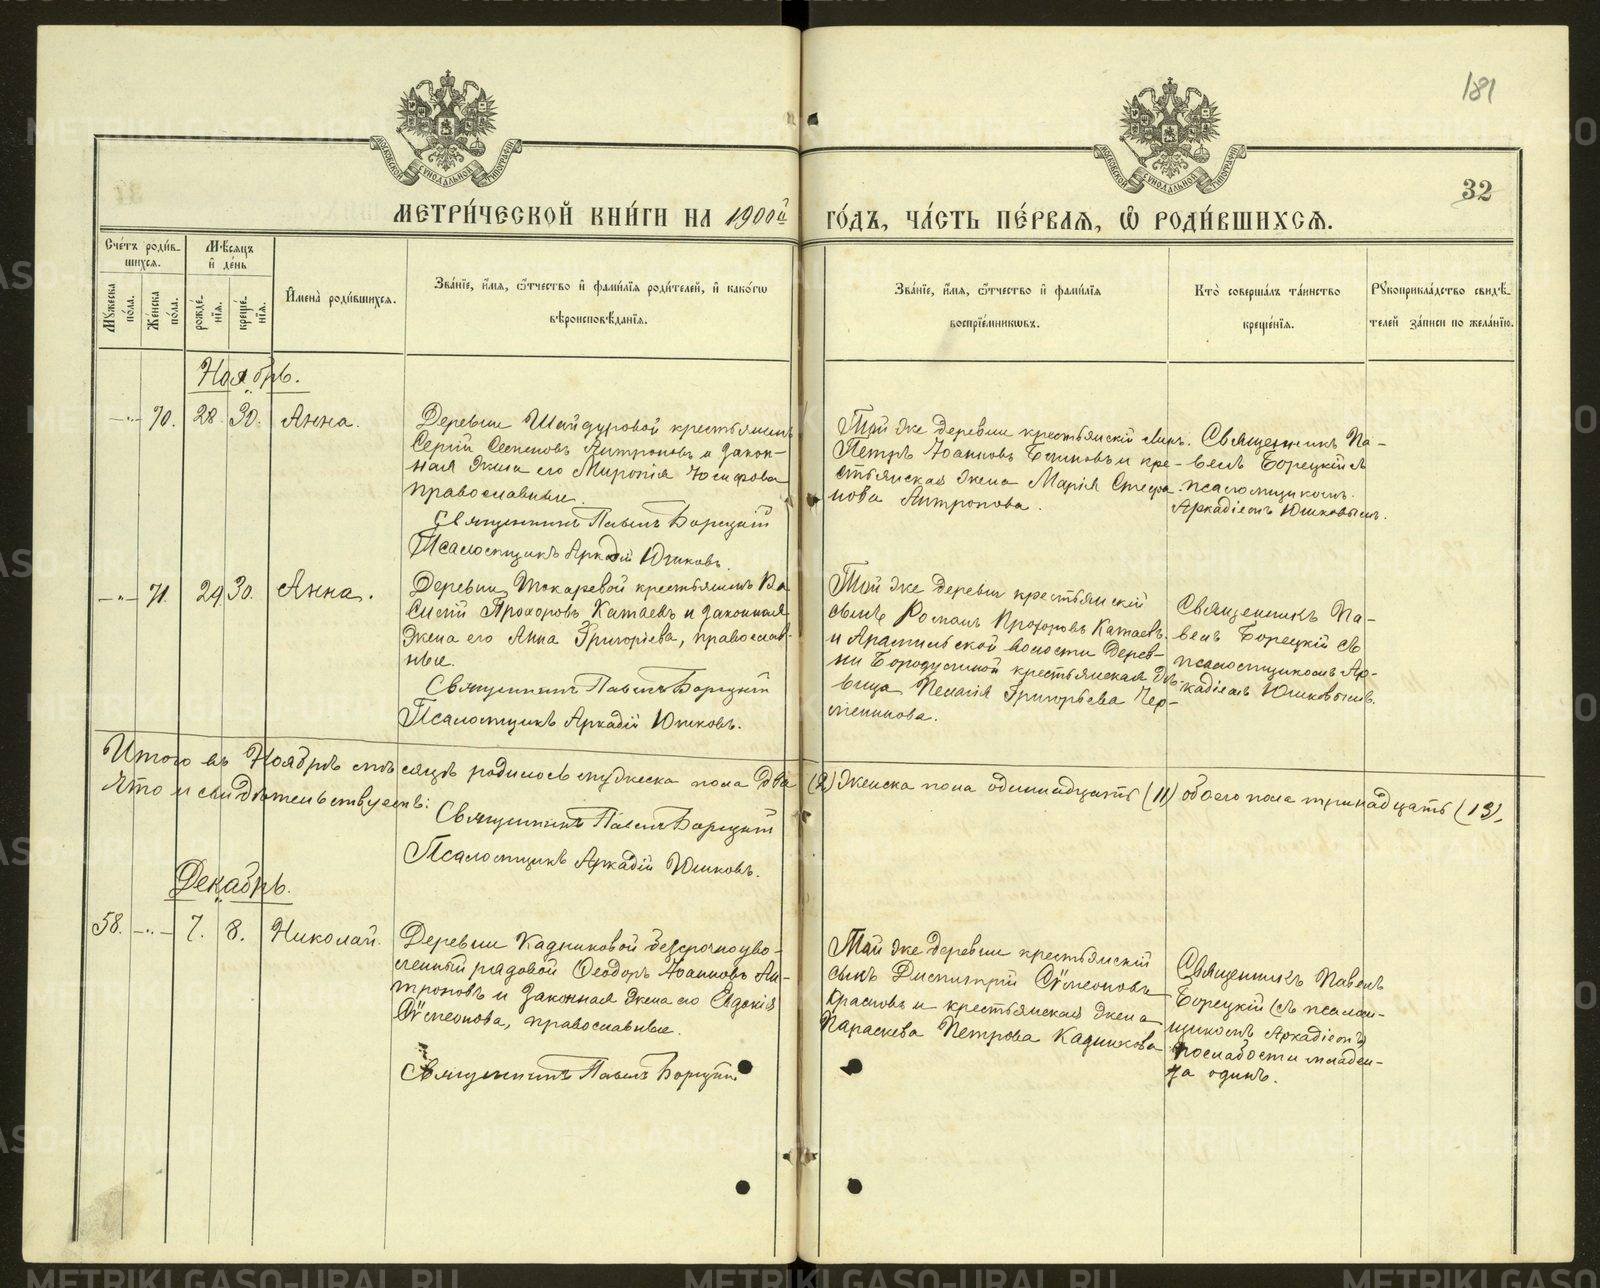 181
32
МЕТРИ́ЧЕСКОЙ КНИ́ГИ НА 1900й ГО́ДЪ, ЧА́СТЬ ПЕ́РВАЯ, Ѿ РОДИ́ВШИХСЯ.
Сче́тъ роди́в-
шихся.
Му́жеска по́ла.
Же́нска по́ла.
Мѣ́сяцъ
и҆ де́нь
рожде́нїя.
креще́нїя.
И҆мена̀ роди́вшихся.
Зва́нїе, и҆́мя, ѻ҆́тчество и҆ фами́лїя роди́телей, и҆ како́гѡ
вѣроисповѣ́данїя.
Зва́нїе, и҆́мя, ѻ҆́тчество и҆ фами́лїя
воспрїе́мникѡвъ.
Кто̀ соверша́лъ та́инство
креще́нїя.
Рꙋкоприкла́дство свидѣ́-
телей за́писи по жела́нїю.
Ноябрь.
-"- 70. 28. 30. Анна.
Деревни Шайдуровой крестьянинъ
Сергій Антроповъ и закон-
ная жена его Миропія Іосифова
православные.
Священникъ Павелъ Борецкій
Псаломщикъ Аркадій Юшковъ.
Той же деревни крестьянскій сынъ
Петръ Іоанновъ и кре-
стьянская жена Марія Стефа-
нова Антропова.
Священникъ Па-
велъ Борецкій съ
псаломщикомъ
Аркадіемъ Юшковымъ.
-"- 71. 29 30. Анна.
Деревни Токаревой крестьянинъ Ва-
силій Прохоровъ Катаевъ и законная
жена его Анна Григоріева, православ-
ные.
Священникъ Павелъ Борецкій
Псаломщикъ Аркадій Юшковъ.
Той же деревни крестьянскій
сынъ Романъ Прохоровъ Катаевъ
и Арамильской волости дерев-
ни Бородулиной крестьянская дѣ-
вица Пелагія Григорьева Чер-
меникова.
Священникъ Па-
велъ Борецкій съ
псаломщикомъ Ар-
кадіемъ Юшковымъ.
Итого въ Ноябрѣ мѣсяцѣ родилось мужеска пола два (2) женска пола одиннадцать (11) обоего пола тринадцать (13),
Что и свидѣтельствуетъ:
Священникъ Павелъ Борецкій
Псаломщикъ Аркадій Юшковъ.
Декабрь.
58. -"- 7. 8. Николай.
Деревни Кадниковой безсрочноуво-
ленный рядовой Ѳеодоръ Іоанновъ Ан-
троповъ и законная жена его Евдокія
Сѵмеонова, православные.
Священникъ Павелъ Борецкій
Той же деревни крестьянскій
сынъ Димитрій Сѵмеоновъ
Красновъ и крестьянская жена
Параскева Петрова Кадникова
Священникъ Павелъ
Борецкій съ псалом-
щикомъ Аркадіемъ
по слабости младен-
ца одинъ.
METRIKI.GASO-URAL.RU